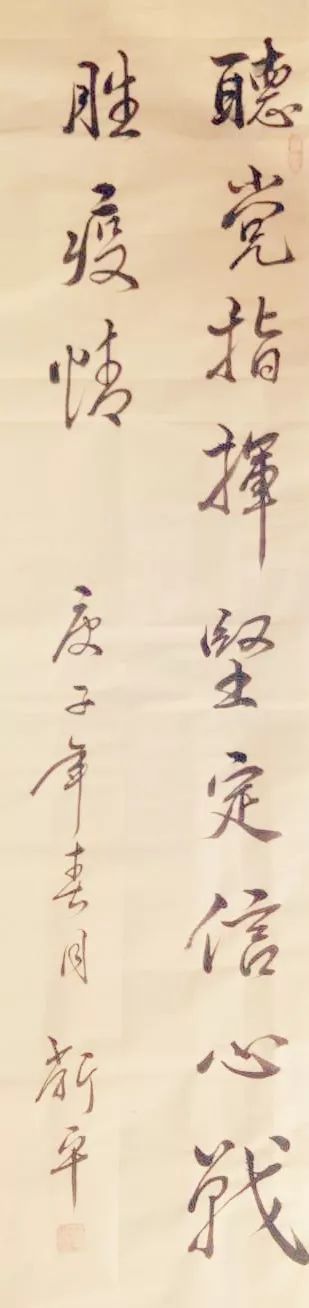 聽党指揮堅定信心戰
胜疫情 庚子年春月 新平